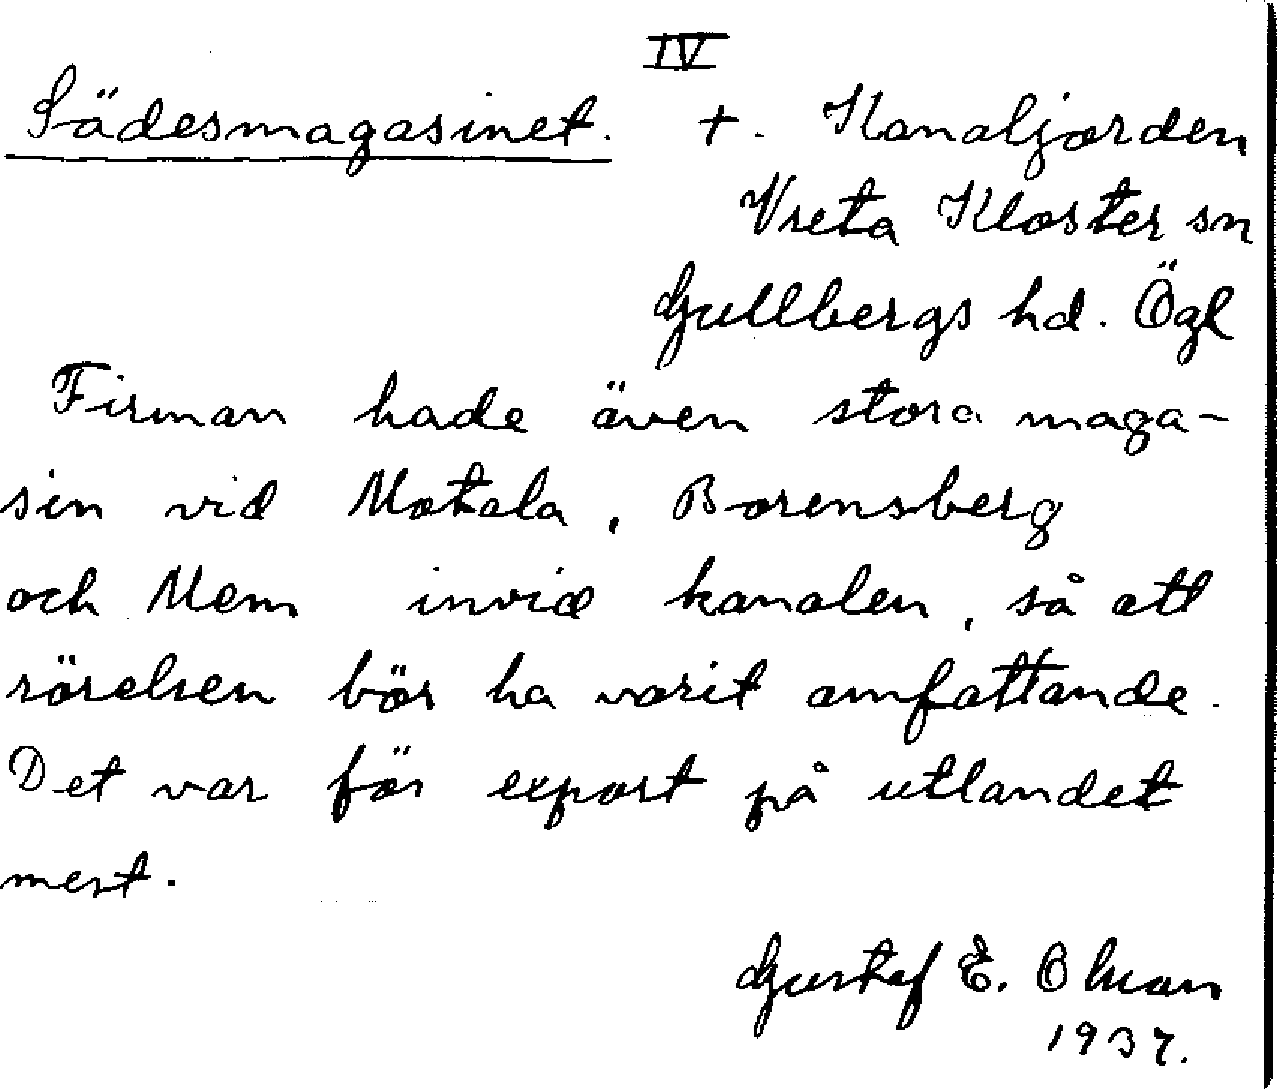 IV
Sädesmagasinet. +. Kanaljorden
Vreta Kloster sn
Gullbergs hd. Ögl
Firman hade även stora maga-
sin vid Motala, Borensberg
och Mem invid kanalen, så att
rörelsen bör ha varit omfattande.
Det var för export på utlandet
mest.
Gustaf E. Olsson
1937.